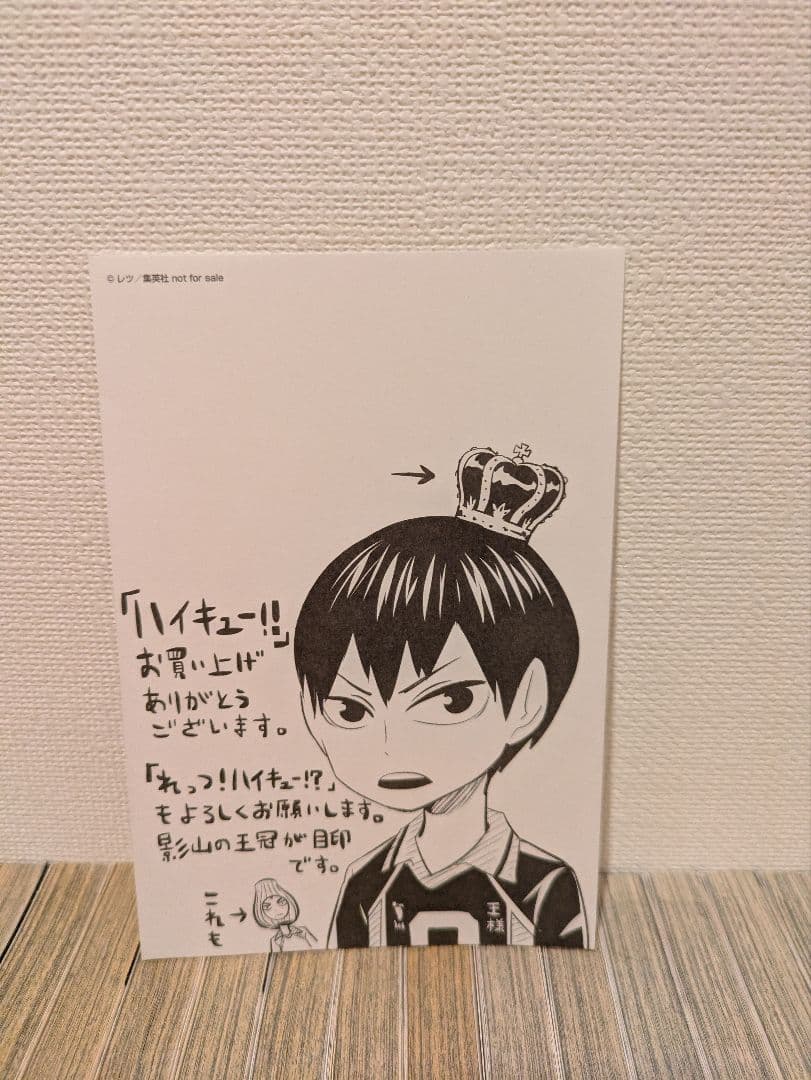 © レツ／集英社 not for sale
「ハイキュー!!」
お買い上げ
ありがとう
ございます。
「れっつ!ハイキュー!?」
もよろしくお願いします。
影山の王冠が目印
です。
これも→
王様